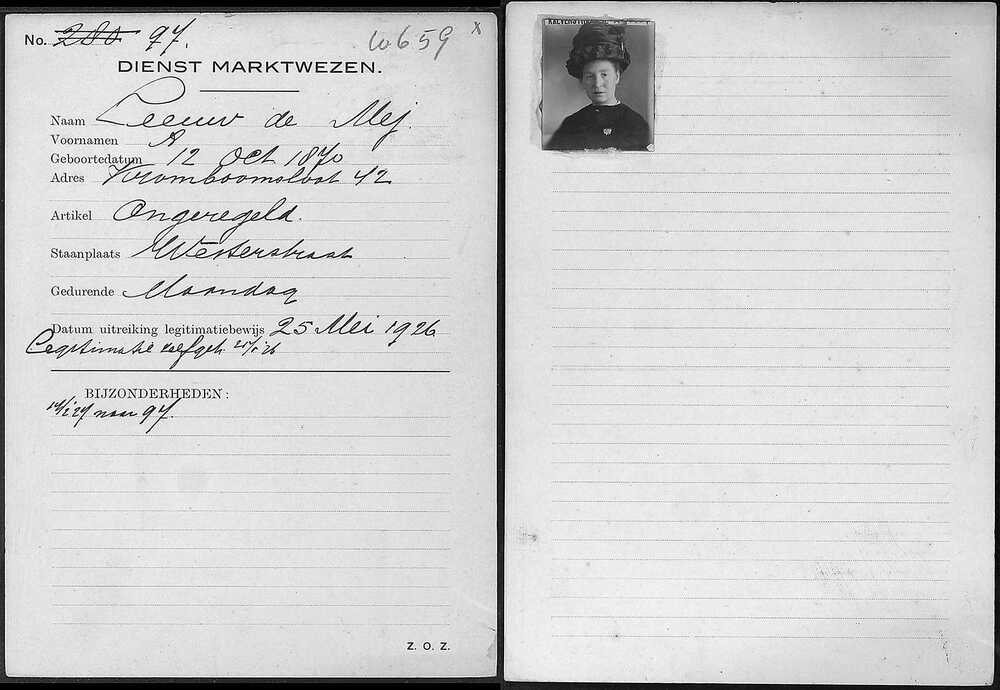 No. 280 97.
W659 x
DIENST MARKTWEZEN.
Naam Leeuw de Mej.
Voornamen A
Geboortedatum 12 Oct 1870
Adres Kromboomsloot 42
Artikel Ongeregeld.
Staanplaats Westerstraat
Gedurende Maandag
Datum uitreiking legitimatiebewijs 25 Mei 1926
Legitimatie
BIJZONDERHEDEN:
naar 97.
Z. O. Z.